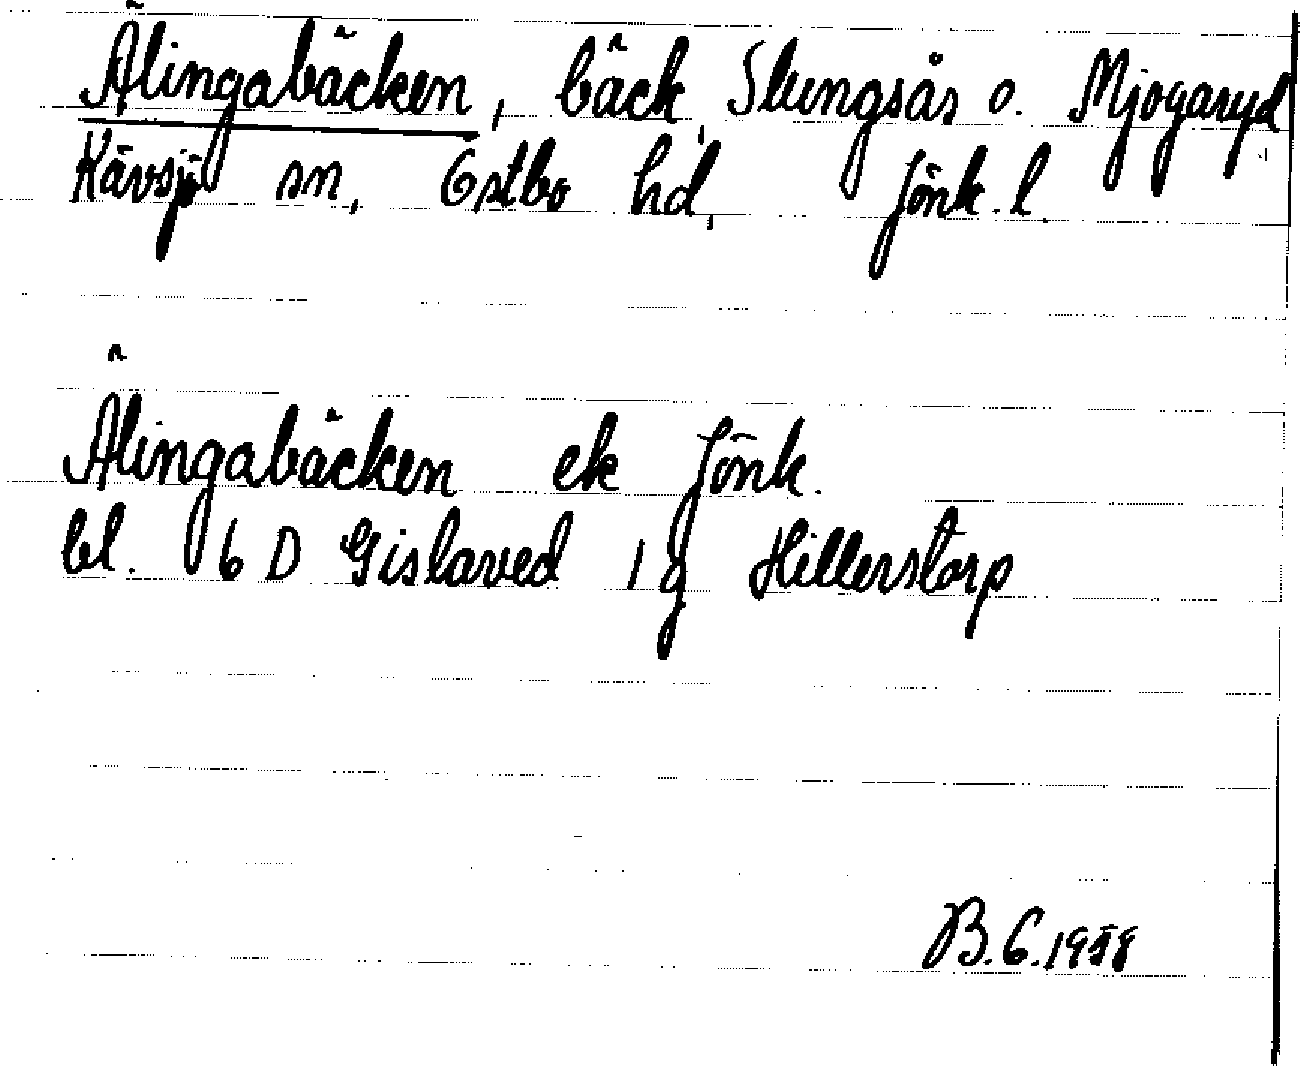 Älingabäcken, bäck, Slungsås o. Mjogaryd
Kävsjö sn, Östbo hd, Jönk. l.
Älingabäcken ek Jönk.
bl. 6 D Gislaved 1 g Hillerstorp
B.G. 1958